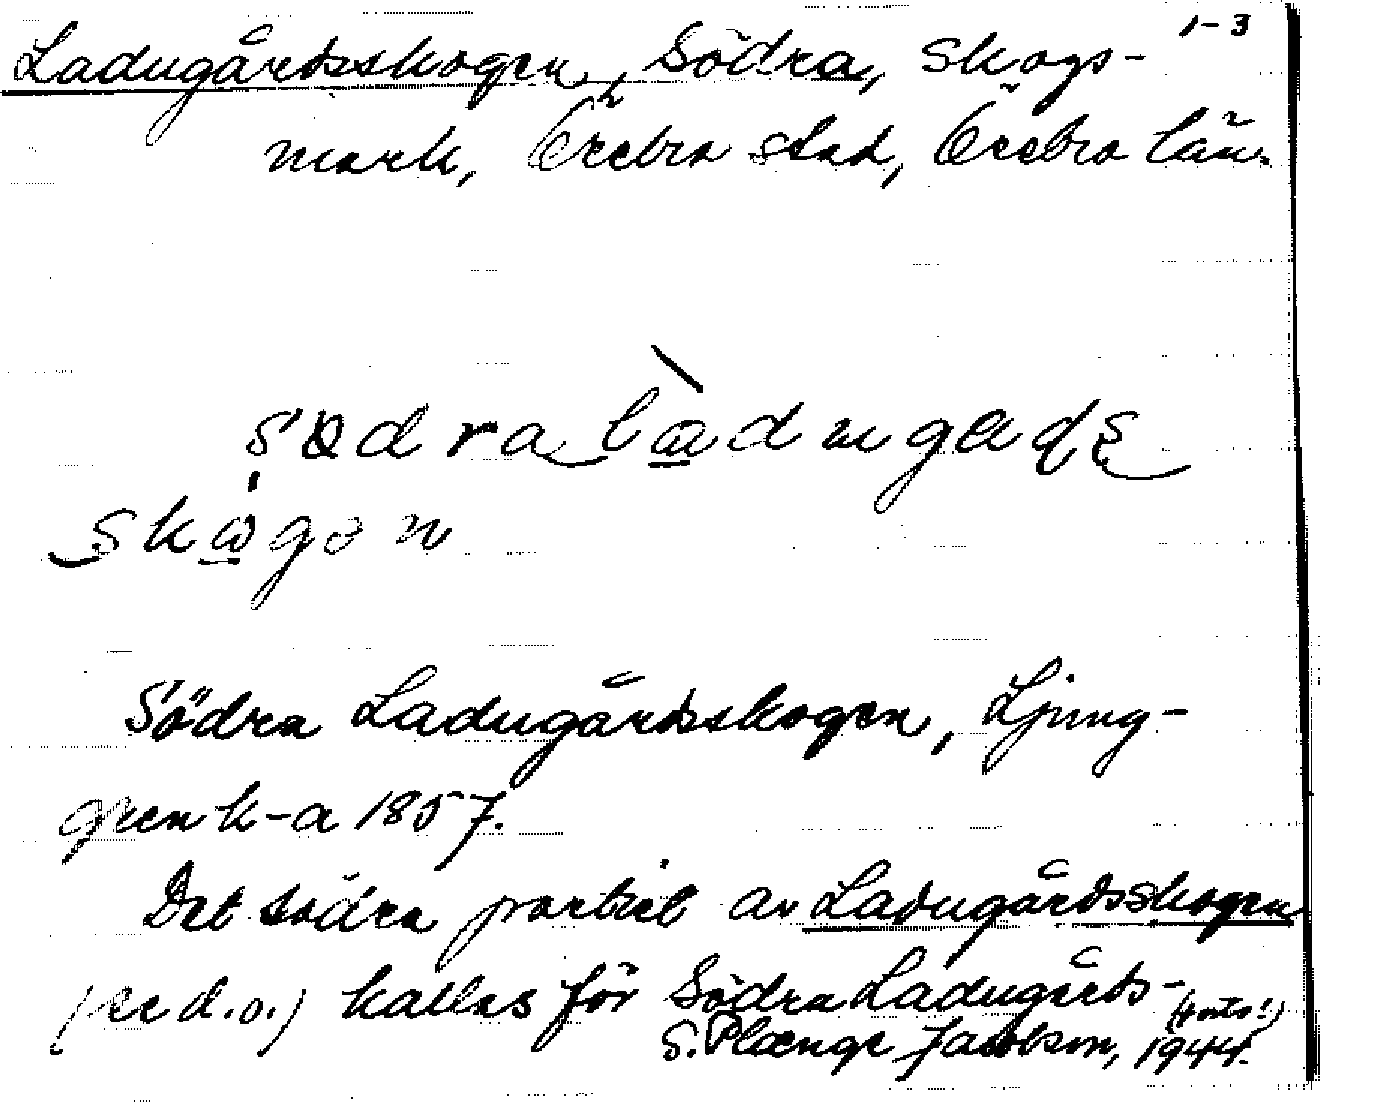 1-3
Ladugårdsskogen, Södra, skogs-
mark, Örebro stad, Örebro län.
Södra Ladugårdsskogen, Ljung-
gren k-a 1857.
Det södra partiet av Ladugårdsskogen
(se d.o.) kallas för Södra Ladugårds-
(forts!)
S. Plænge Jacobson, 1944.